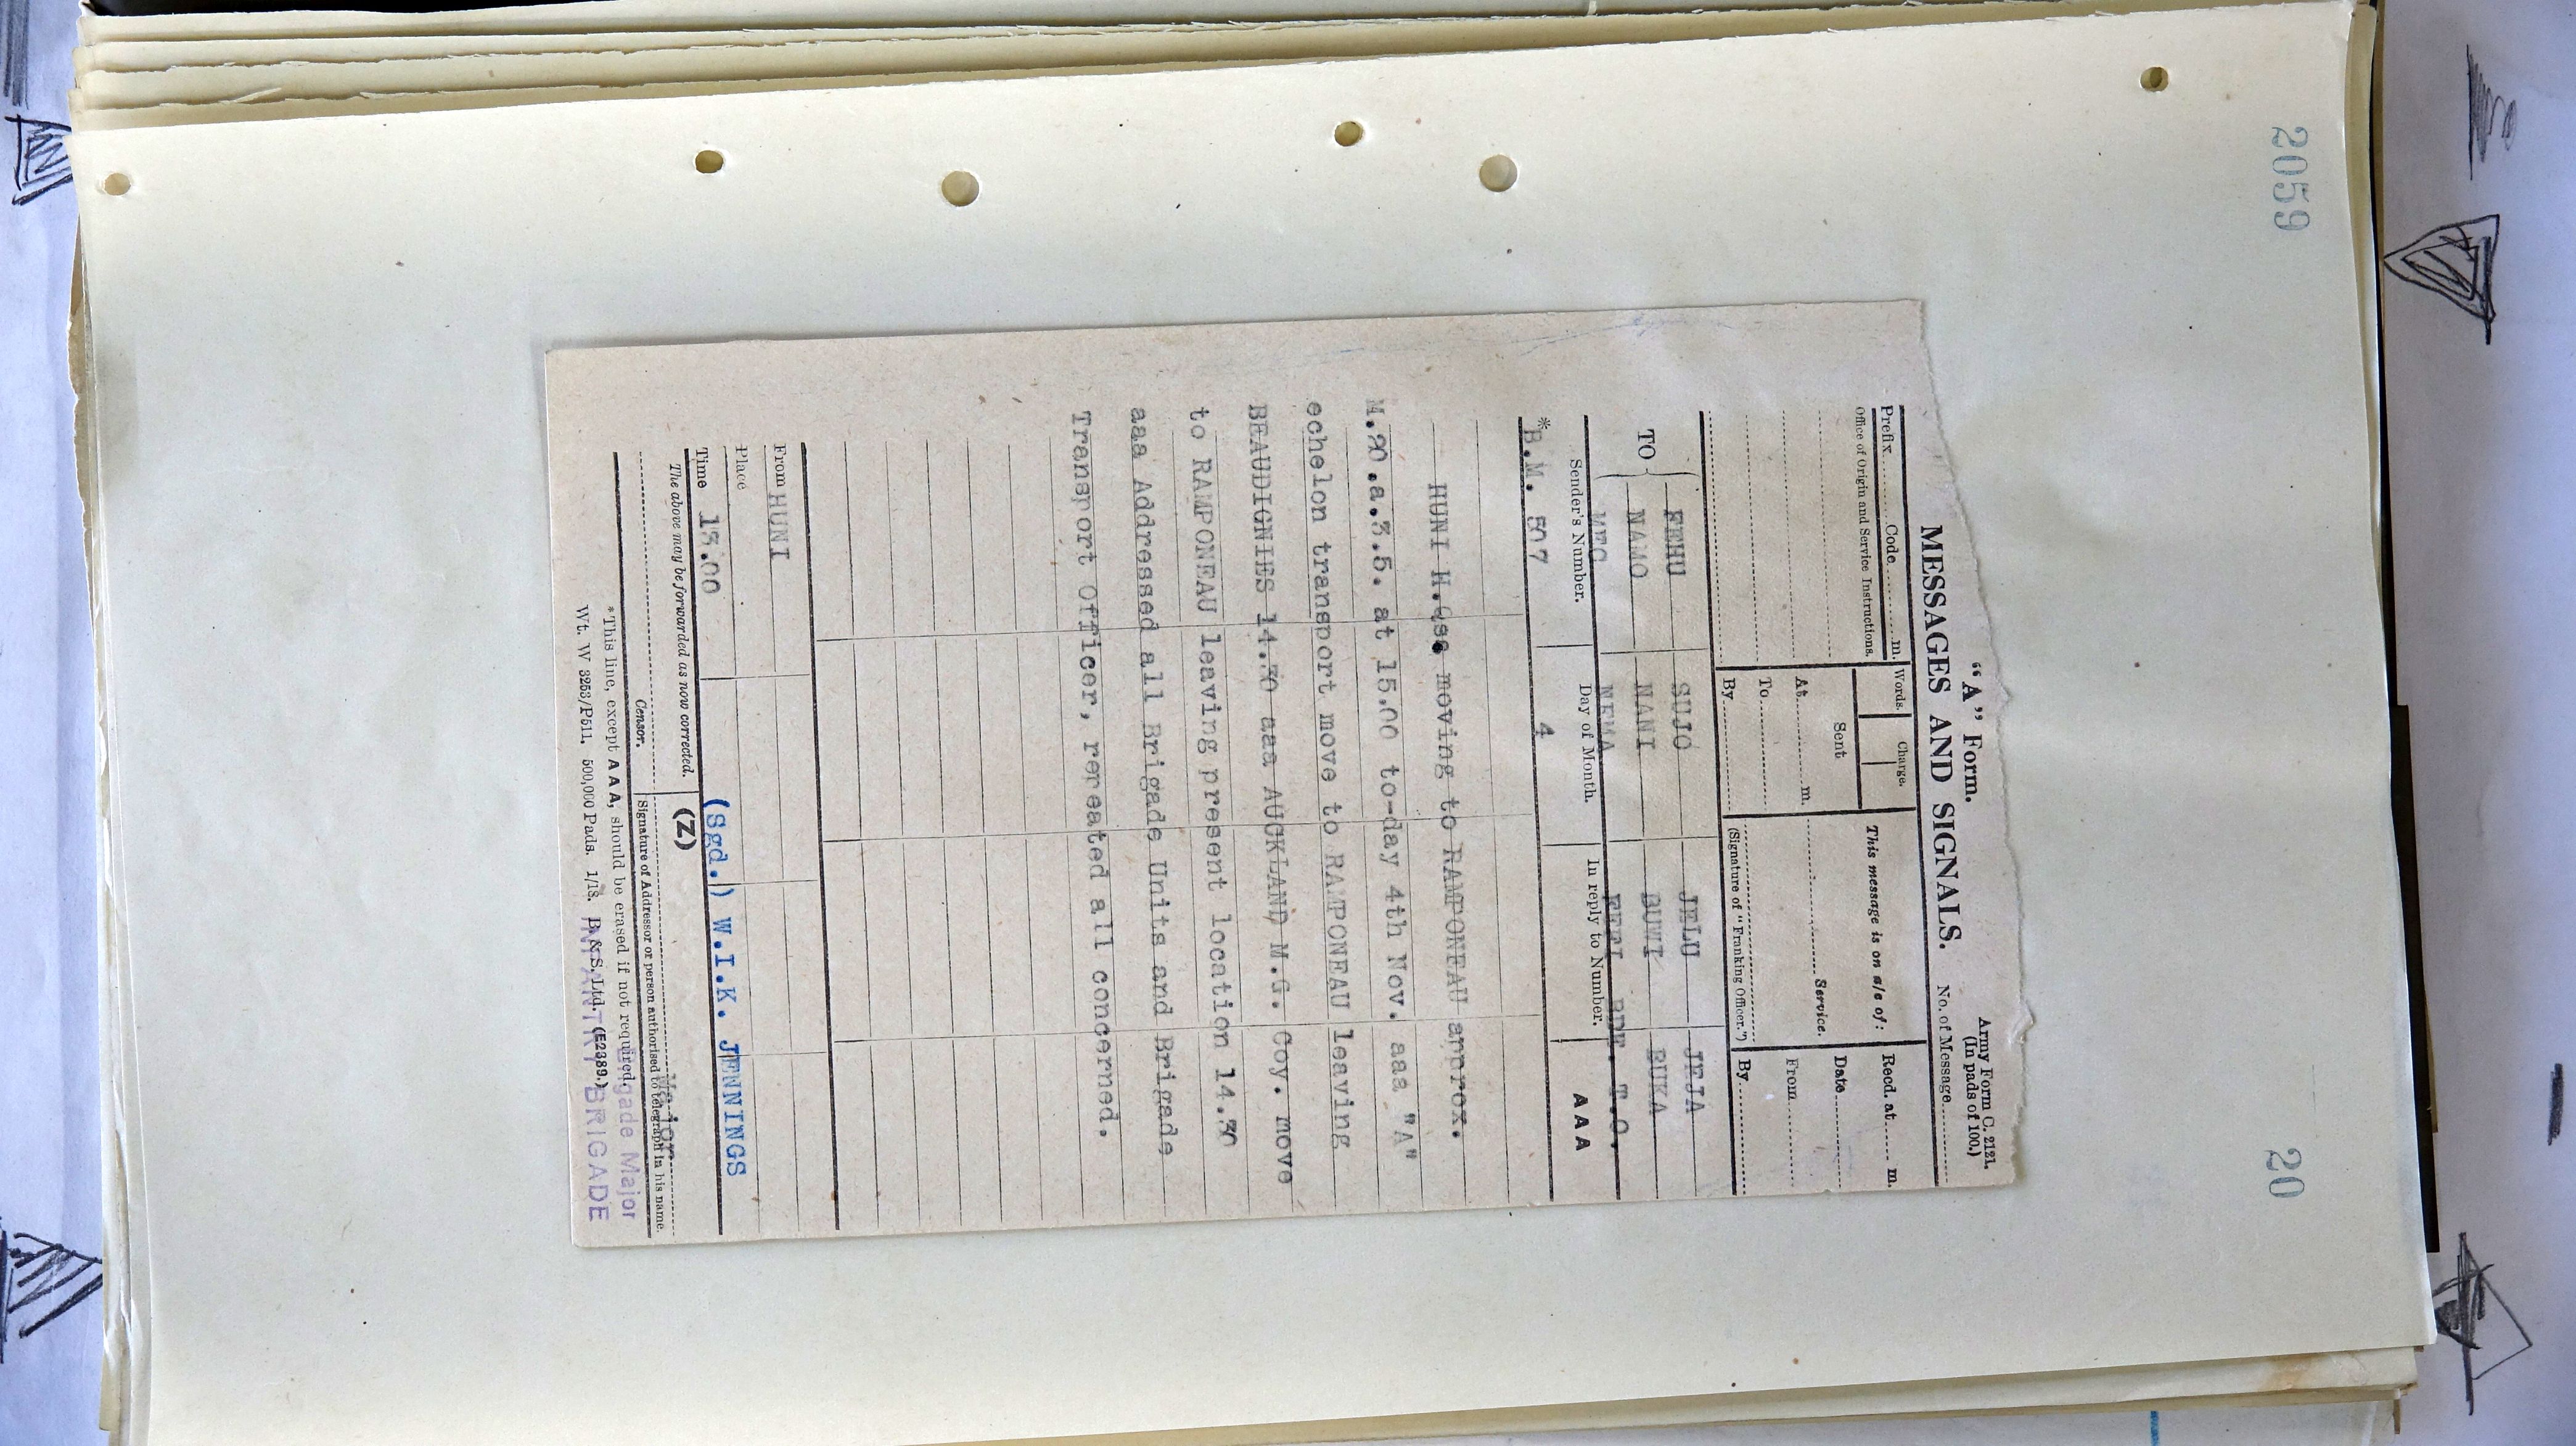 2059
20
"A" Form.
MESSAGES AND SIGNALS.
Army Form C. 2121.
(In pads of 100.)
No. of Message
Prefix Code m.
Office of Origin and Service Instructions.
Words. Charge.
Sent
At m.
To
By
This message is on a/c of:
Service.
(Signature of "Franking Officer.")
Recd. at m.
Date
From
By
TO
FEHU SUJO JELU JEJA
NAMO NANI BUVI BUKA
NEMA BDE. T.O.
Sender's Number. Day of Month. In reply to Number. AAA
*B.M. 507 4
HUNI H.Qss moving to RAMPONEAU approx.
M.20.a.3.5. at 15.00 to-day 4th Nov. aaa "A"
echelon transport move to RAMPONEAU leaving
BEAUDIGNIES 14.30 aaa AUCKLAND M.G. Coy. move
to RAMPONEAU leaving present location 14.30
aaa Addressed all Brigade Units and Brigade
Transport Officer, repeated all concerned.
From HUNI
Place
Time 13.00
(Sgd.) W.I.K. JENNINGS
The above may be forwarded as now corrected. (Z)
Major
Censor. Signature of Addressor or person authorised to telegraph in his name.
Brigade Major
*This line, except AAA, should be erased if not required.
INFANTRY BRIGADE
Wt. W 3253/P511. 500,000 Pads. 1/18. B. & S. Ltd. (E2389.)